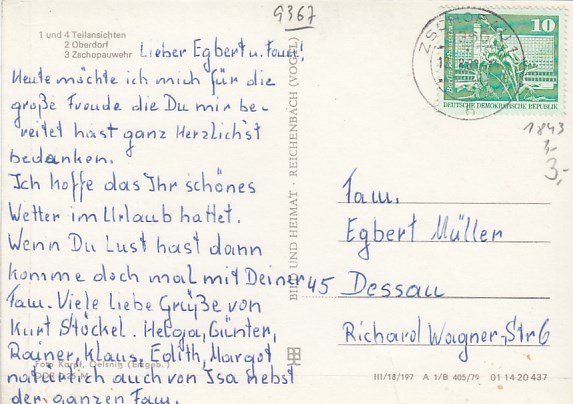 9367
1 und 4 Teilansichten
2 Oberdorf
3 Zschopauwehr
Lieber Egbert u. Fam!
Heute möchte ich mich für die
große Freude die Du mir be-
reitet hast ganz Herzlich'st
bedanken.
Ich hoffe das Ihr schönes
Wetter im Urlaub hattet.
Wenn Du Lust hast dann
komme doch mal mit Deiner
Fam. Viele liebe Grüße von
Kurt Stöckel. Helga, Günter,
Rainer, Klaus, Edith, Margot
natürlich auch von Isa nebst
der ganzen Fam.
Foto Karpf, Oelsnitz (Erzgeb.)
BILD UND HEIMAT · REICHENBACH (VOGTL)
10
DEUTSCHE DEMOKRATISCHE REPUBLIK
1843
3,-
3,-
Fam.
Egbert Müller
45 Dessau
Richard Wagner-Str 6
III/18/197 A 1/B 405/79 01 14 20 437